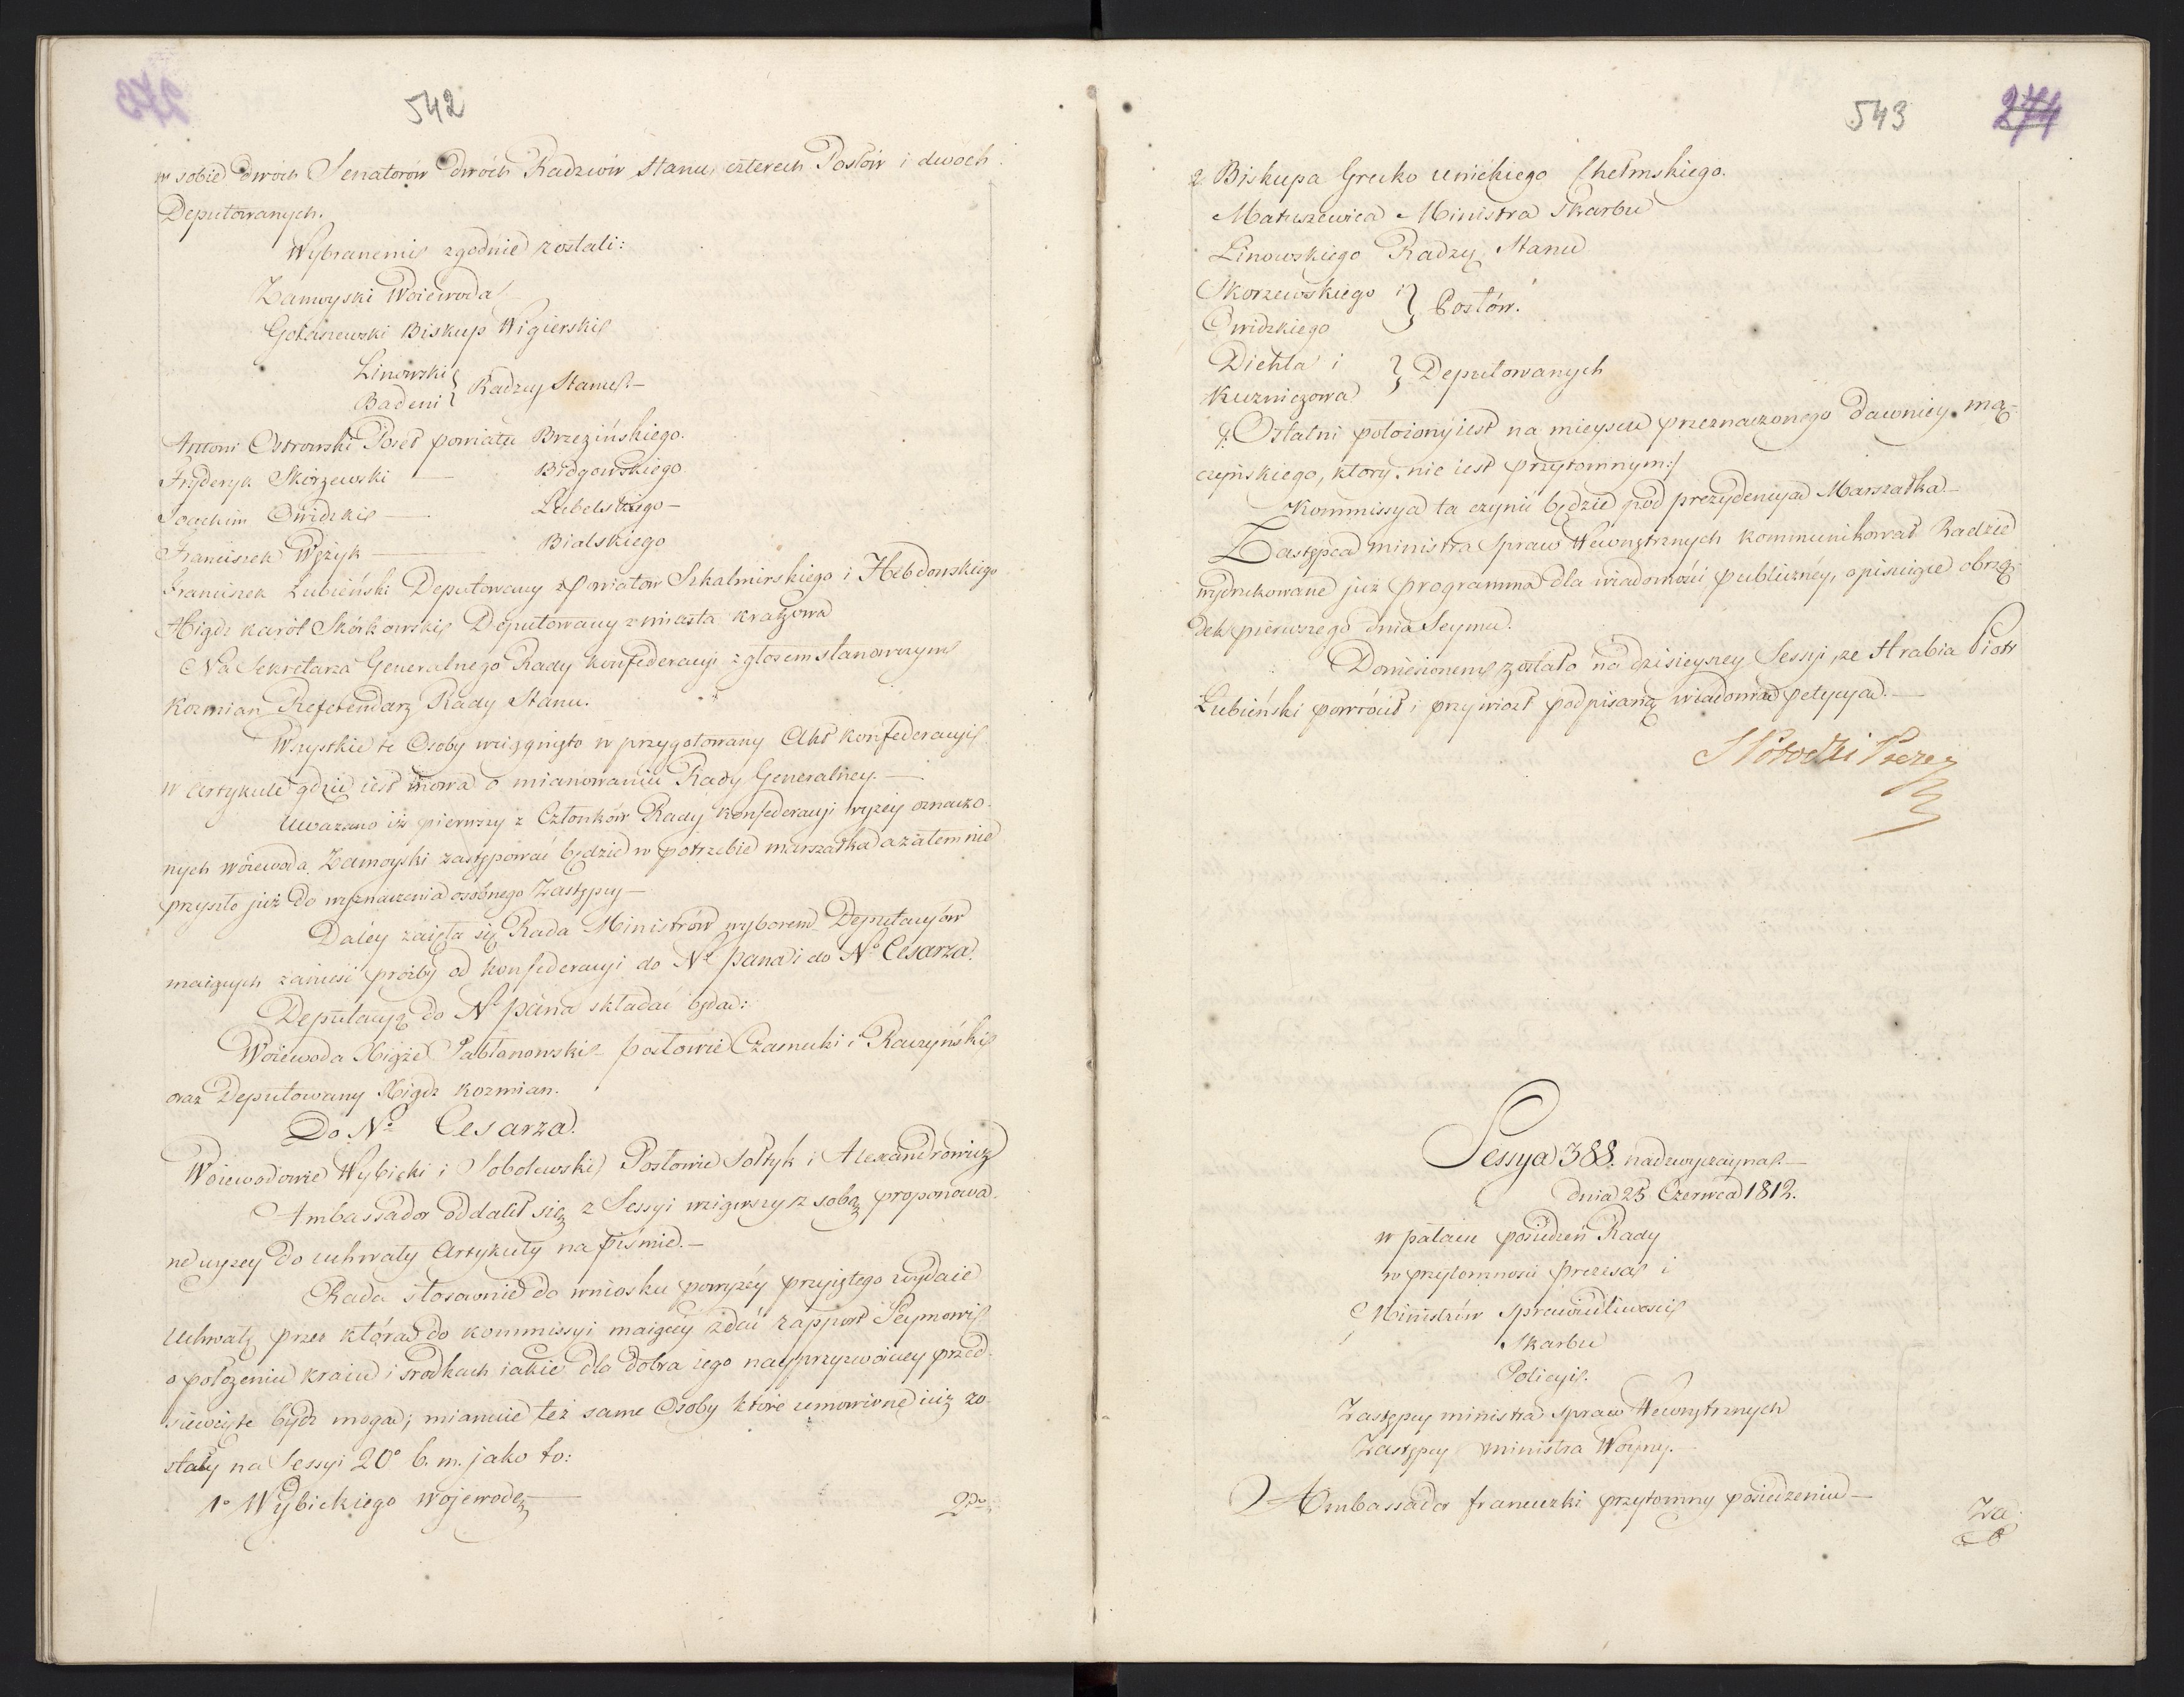 542
w sobie dwóch Senatorów dwóch Radzców Stanu, czterech Posłów i dwóch
Deputowanych.
Wybranemi zgodnie zostali:
Zamoyski Woiewoda
Gołaszewski Biskup Wigierski
Linowski
Badeni } Radzcy Stanu —
Antoni Ostrowski Poseł powiatu Brzezińskiego.
Fryderyk Skórzewski — Bidgowskiego
Joachim Owidzki — Lubelskiego —
Franciszek Wężyk — Bialskiego
Franciszek Łubieński Deputowany z Powiatów Szkalmirskiego i Hebdowskiego
Xiądz Karól Skórkowski Deputowany z miasta Krakowa
Na Sekretarza Generalnego Rady Konfederacyi z głosem stanowczym
Kozmian Referendarz Rady Stanu.
Wszystkie te Osoby wciągnięto w przygotowany Akt Konfederacyi
w Artykule gdzie iest mowa o mianowaniu Rady Generalney. —
Uważano iż pierwszy z Członków Rady Konfederacyi wyzey oznaczo-
nych Woiewoda Zamoyski zastępować będzie w potrzebie marszałka a zatem nie
przyszło już do wyznaczenia osobnego Zastępcy —
Daléy zaięła się Rada Ministrów wyborem Deputacyów
maiących zanieść prośby od Konfederacyi do No Pana i do No Cesarza.
Deputacyą do No Pana składać będą:
Woiewoda Xiąże Jabłonowski — posłowie Czarnecki i Raczyński
oraz Deputowany Xiądz Kozmian.
Do No Cesarza.
Woiewodowie Wybicki i Sobolewski, Posłowie Sołtyk i Alexandrowicz
Ambassador oddalił się z Sessyi wziąwszy z sobą proponowa-
ne wyzey do uchwały Artykuły na piśmie. —
Rada stosownie do wniosku powyżéy przyiętego wydaie
Uchwałę przez którą do Kommissyi maiącéy zdać rapport Seymowi
o położeniu kraiu i srodkach iakie dla dobra iego nayprzyzwoiciey przed-
siewzięte bydz mogą; mianuie też same Osoby które umówione iuż zo-
stały na Sessyi 20° b. m. jako to:
1° Wybickiego Wojewodę —
2do
543
274
2 Biskupa Grecko unickiego Chełmskiego.
Matuszewica Ministra Skarbu
Linowskiego Radzcę Stanu
Skorzewskiego i
Owidzkiego } Posłów.
Diehla i
Kuzniczowa } Deputowanych
/:Ostatni położony iest na mieyscu przeznaczonego dawniey Mą-
czyńskiego, który nie iest przytomnym:/
Kommissya ta czynić będzie pod prezydencyą Marszałka —
Zastępca ministra Spraw Wewnętrznych kommunikował Radzie
wydrukowane już programma dla wiadomości publiczney, opisuiące obrzą-
dek pierwszego dnia Seymu.
Doniesionem zostało na dzisieyszey Sessyi, że Hrabia Piotr
Łubieński powrócił i przywiozł podpisaną wiadomą petycyą. —
S Potocki Prezes
Sessya 388. nadzwyczayna. —
dnia 25 Czerwca 1812.
w pałacu posiedzeń Rady
w przytomności Prezesa i
Ministrów Sprawiedliwości
Skarbu
Policyi.
Zastępcy ministra Spraw Wewnętrznych
Zastępcy ministra Woyny. —
Ambassador francuzki przytomny posiedzeniu —
Za